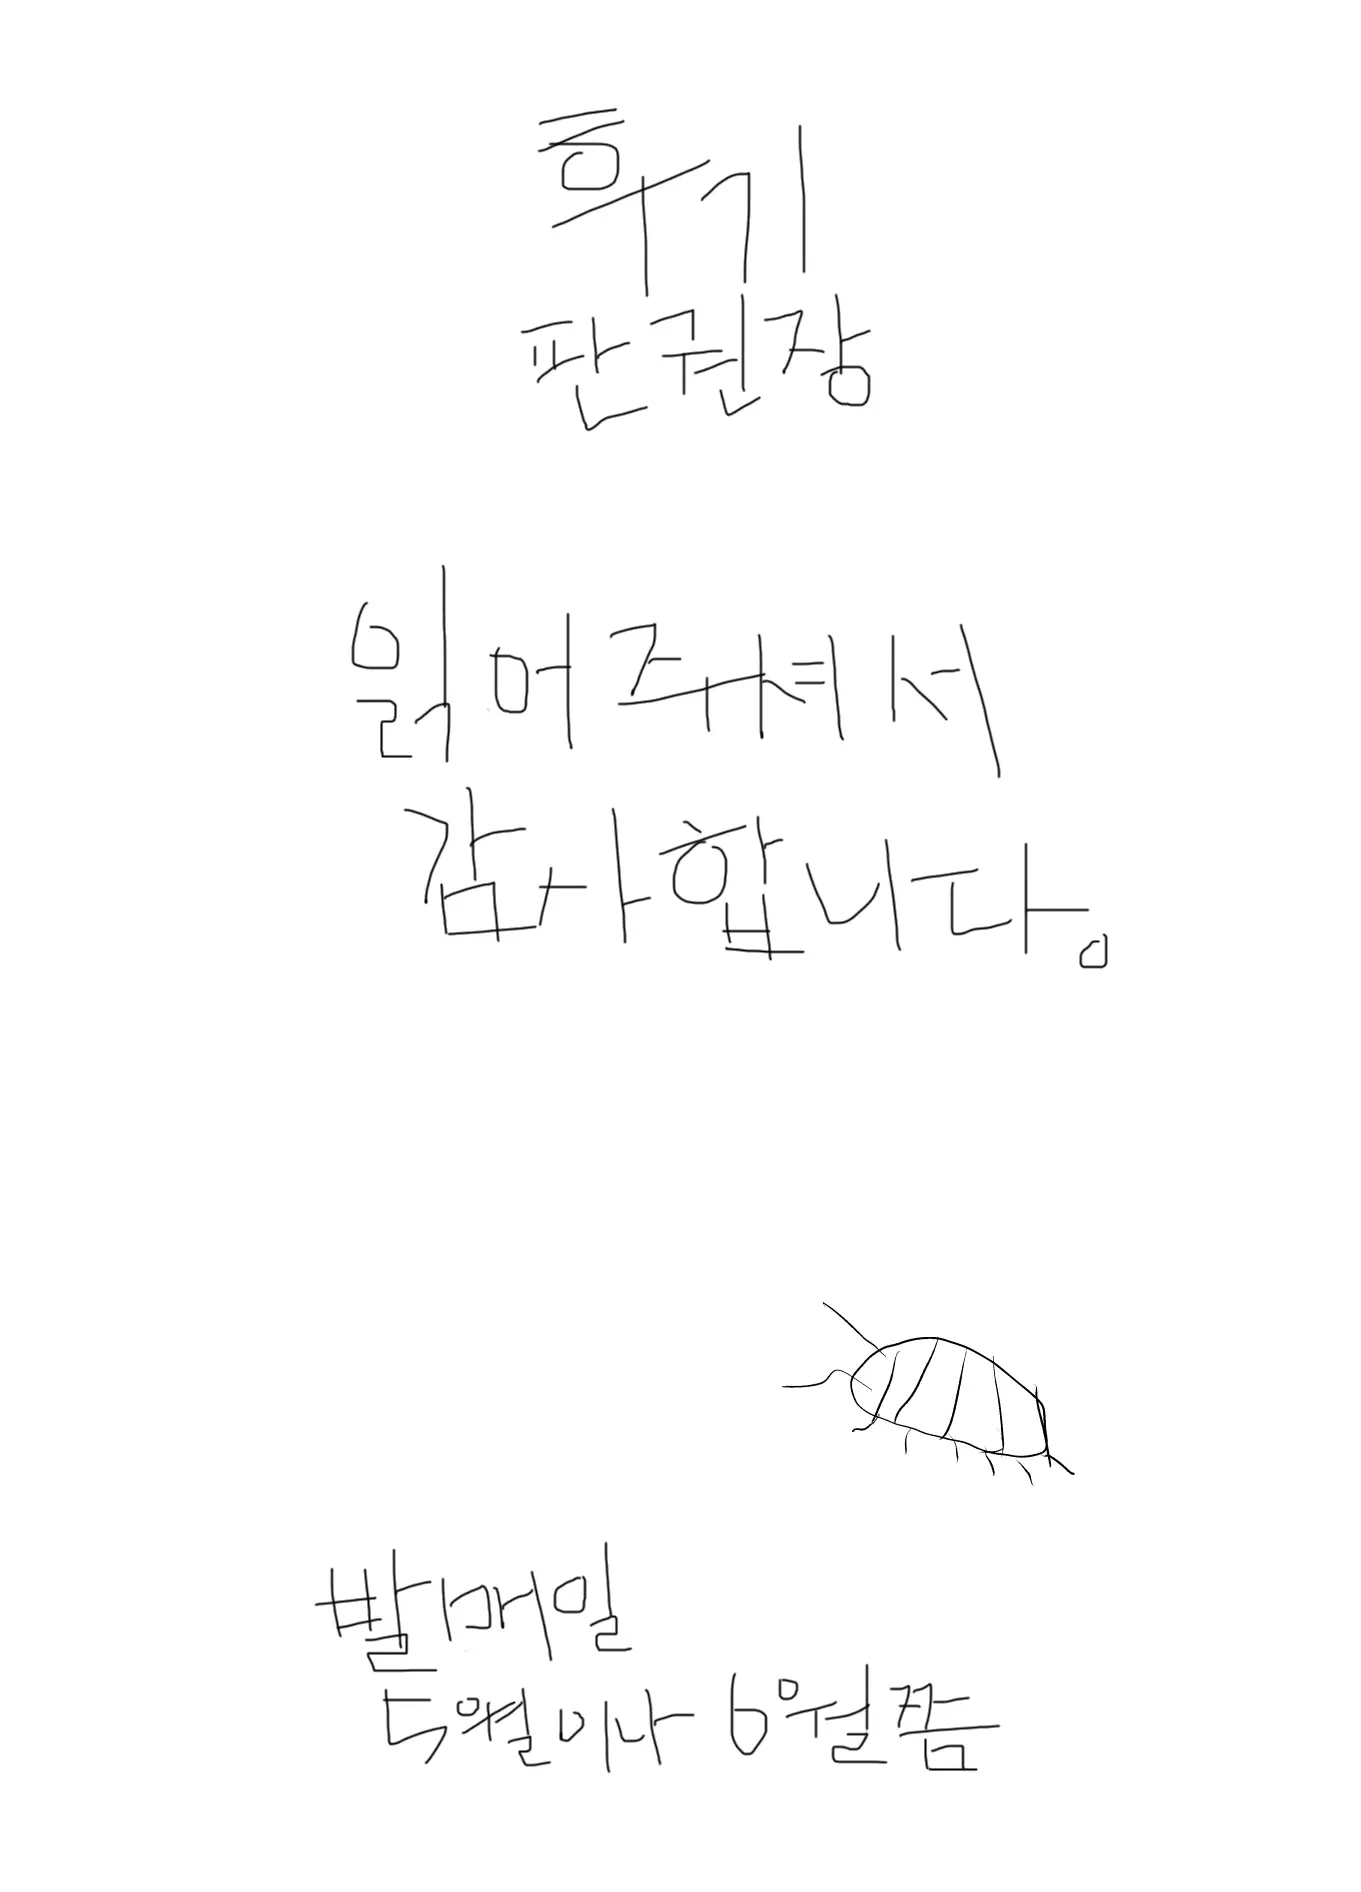 후기
판권장
읽어주셔서
감사합니다。
발매일
5월이나 6월쯤